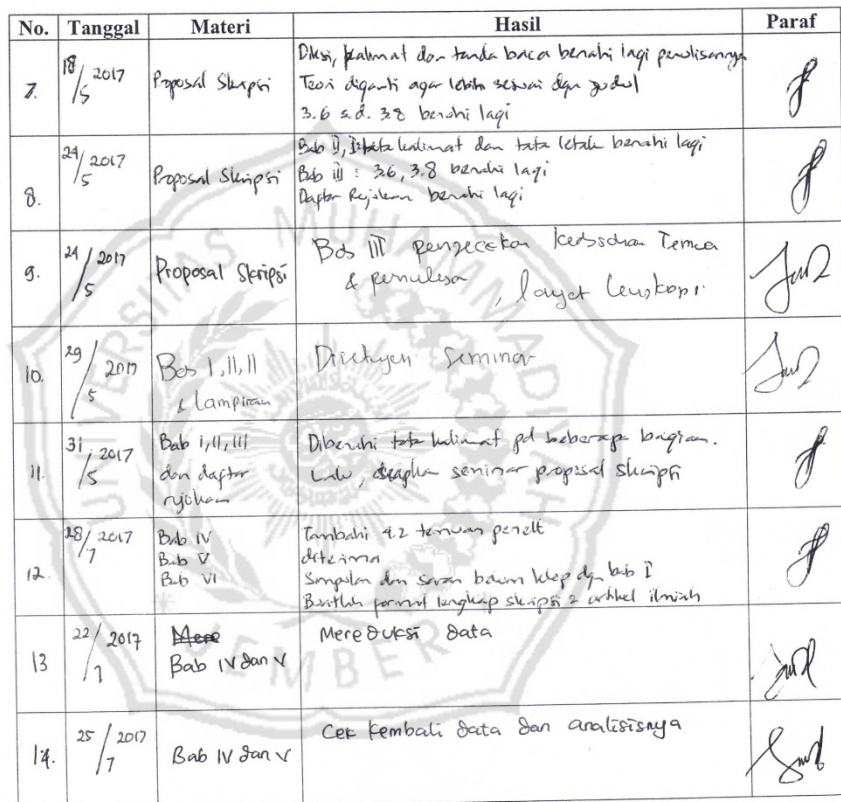 No. Tanggal Materi Hasil Paraf
7. 18/5 2017 Proposal Skripsi
Diksi, kalimat dan tanda baca benahi lagi penulisannya
Teori diganti agar lebih sesuai dgn judul
3.6 s.d. 3.8 benahi lagi
8. 24/5 2017 Proposal Skripsi
Bab II, tata kalimat dan tata letak benahi lagi
Bab III : 3.6, 3.8 benahi lagi
Daftar Rujukan benahi lagi
9. 24/5 2017 Proposal Skripsi
Bab III pengecekan
&
10. 29/5 2017 Bab I, II, II
& lampiran
Disetujui Seminar
11. 31/5 2017 Bab I, II, III
dan daftar
rujukan
Dibenahi tata kalimat pd beberapa bagian.
Lalu, siapkan seminar proposal skripsi
12. 28/7 2017 Bab IV
Bab V
Bab VI
Tambahi 4.2 temuan penelt
diterima
Simpulan dan saran belum klop dgn bab I
format lengkap skripsi 2 artikel ilmiah
13 22/7 2017 Mere
Bab IV dan V
Mereduksi data
14. 25/7 2017 Bab IV dan V
Cek kembali data dan analisisnya
UNIVERSITAS MUHAMMADIYAH
JEMBER